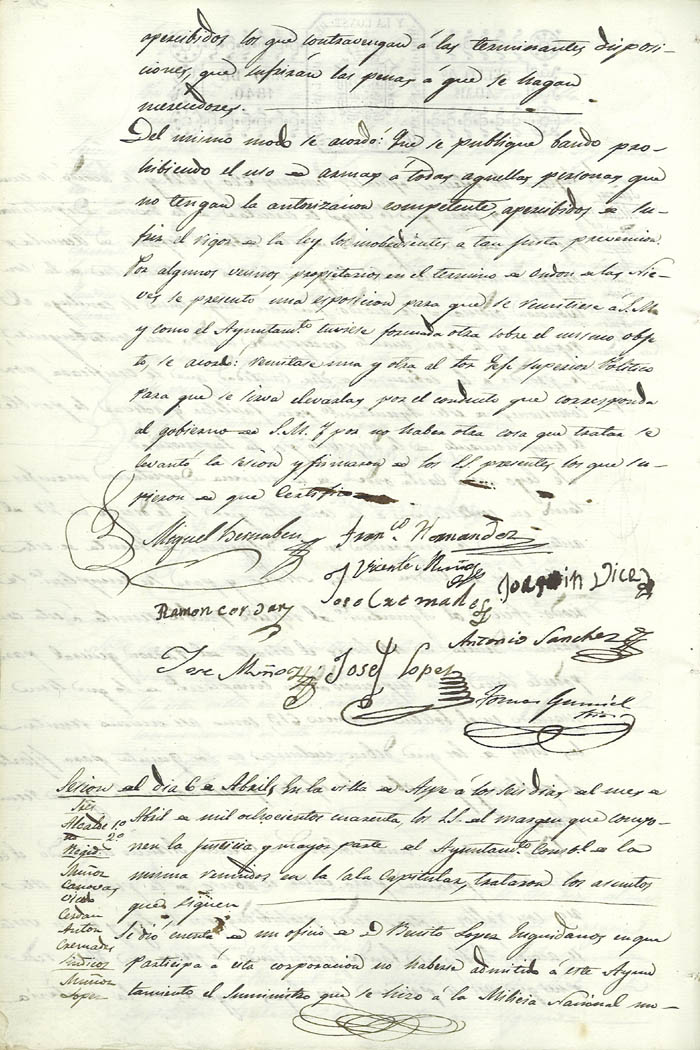 apercibidos los que contravengan á las terminantes disposi-
ciones, que sufrirán las penas á que se hagan
merecedores.
Del mismo modo se acordó: Que se publique bando pro-
hibiendo el uso de armas á todas aquellas personas que
no tengan la autorizacion competente, apercibidos de su-
frir el rigor de la ley los inobedientes á tan justa prevencion.
Por algunos vecinos propietarios en el termino de Ondon de las Nie-
ves se presentó una esposicion para que se remitiese á S.M.
y como el Ayuntamto. tuviese formada otra sobre el mismo obje-
to, se acordó: remitase una y otra al Sor. Gefe superior Politico
para que se sirva elevarlas por el conducto que corresponda
al gobierno de S.M. Y por no haber otra cosa que tratar se
levantó la sesion y firmaron de los SS. presentes los que su-
pieron de que Certifico
Miguel Bernabeu Franco. Hernandez
Vicente Muñoz
Joaquin Vicedo
Ramon Cerdan Jose Cremades
Antonio Sanchez
Jose Muñoz Josef Lopez
Tomas
Srio.
Sesion del dia 6 de Abril, En la villa de Aspe á los seis dias del mes de
Sres.
Alcalde 1º
2º
Regid.
Muñoz
Canovas
Vicedo
Cerdan
Anton
Cremades
Sindicos
Muñoz
Lopez
Abril de mil ochocientos cuarenta, los SS. del margen que compo-
nen la Justicia y mayor parte del Ayuntamto. Consl. de la
misma reunidos en la Sala Capitular, trataron los asuntos
que siguen
Se dió cuenta de un oficio de D. Benito Lopez Enguidanos en que
participa á esta corporacion no haberse admitido á este Ayun
tamiento el Suministro que se hizo á la Milicia Nacional mo-